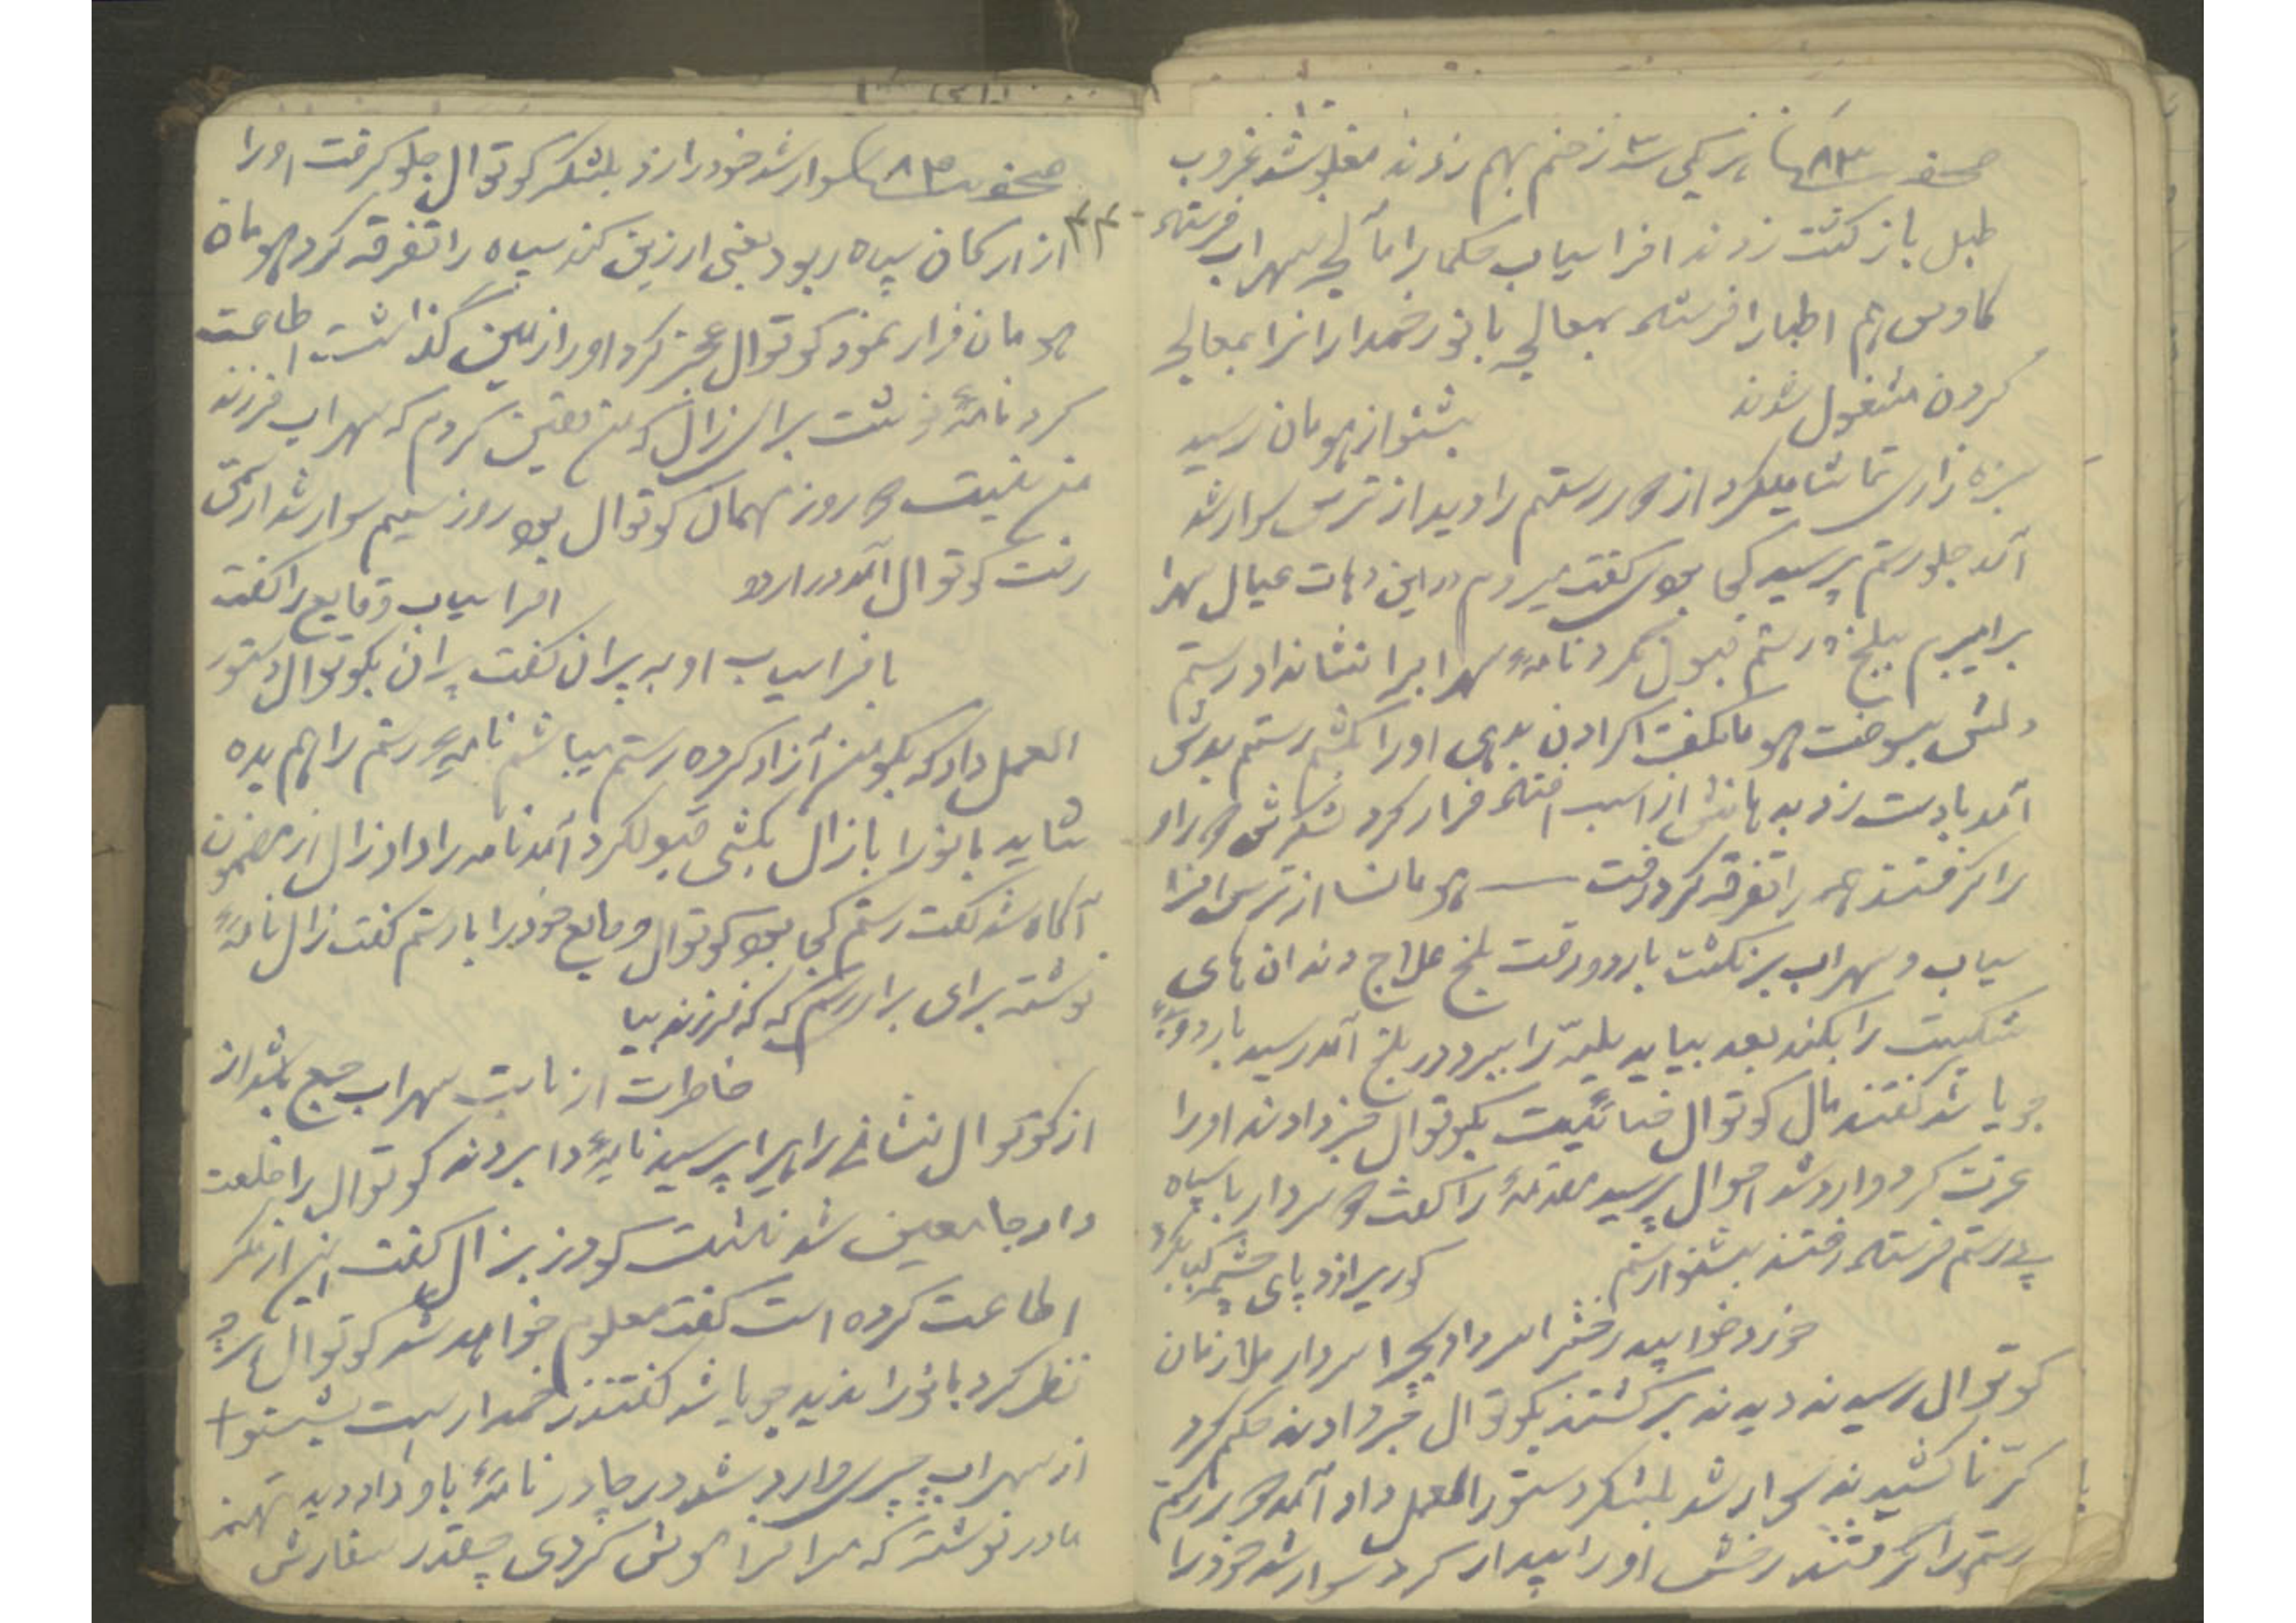 صفحه ۸۳ یکی سه زخم بهم زدند مغلوبه شد غروب
طبل باز گشت زدند افراسیاب حکما را بمعالجه سهراب فرستاد
کاوس هم اطبا را فرستاد بمعالجه بانو زخمدارانرا بمعالجه
کردن مشغول شدند بشنو از هومان رسید
سبزه زاری تماشا میکرد از دور رستم را دید از ترس سوار شد
آمد جلو رستم پرسید کجا بودی گفت میروم در این دهات عیال سهرا
برا ببرم ببلخ رستم قبول نکرد نامهٔ سهرابرا نشانداد رستم
دلش بسوخت هومان گفت اگر اذن بدهی اورا بکشم رستم بدش
آمد با دست زد بدهانش از اسب افتاد فرار کرد لشکرش دور او
را گرفتند همه را تفرقه کرد رفت هومان از ترس افرا
سیاب و سهراب برنگشت باردو رفت بلخ علاج دندان های
شکسته را بکند بعد بیاید در بلخ آمد رسید باردوی
جویا شد گفتند مال کوتوال کوتوال خبر دادند اورا
عزت کرد وارد شد احوال پرسید مقدمهٔ را گفت سردار با سپاه
پی رستم فرستاد رفتند بشنو از رستم گوری زد پای چشمه کباب کرد
خورد خوابید رخش را سر داد بچرا سردار ملازمان
کوتوال رسیدند دیدند برگشتند بکوتوال خبر دادند حکم کرد
کرنا کشیدند سوار شد لشکر دستور العمل داد آمد دور رستم
رستم را گرفتند رخش اورا بیدار کرد سوار شد خود را
صفحه ۸۳ سوار شد خود را زد بلشکر کوتوال جلو گرفت اورا
۴۴
از ارکان سپاه ربود یعنی از زین کند سپاه را تفرقه کرد هومان
هومان فرار نمود کوتوال عجز کرد اورا زمین گذاشت اطاعت
کرد نامهٔ نوشت برای زال که من یقین کردم که سهراب فرزند
من نیست دو روز مهمان کوتوال بود روز سیم سوار شد
رفت کوتوال آمد در اردو افراسیاب وقایع را گفت
بافراسیاب او به پیران گفت پیران بکوتوال دستور
العمل داد که بگو من آزاد کرده رستم میباشم نامهٔ رستم را هم بده
شاید بانو را با زال بکشی قبول کرد آمد نامه را داد زال از مضمون
آگاه شد گفت رستم کجا بود کوتوال وقایع خود را با رستم گفت زال نامهٔ
نوشته برای برادر رستم که که فرزند بیا
خاطرت از بابت سهراب جمع باشد از
از کوتوال نشانی را پرسید نامهٔ را بردند کوتوال را خلعت
داد جا معین شد نشست گودرز بزال گفت این از مکر
اطاعت کرده است گفت معلوم خواهد شد کوتوال
نظر کرد بانو را ندید جویا شد گفتند زخمدار است بشنو +
از سهراب وارد شد در چادر نامهٔ باو داد دید تهمینه
مادر نوشته که مرا فراموش کردی چقدر سفارش